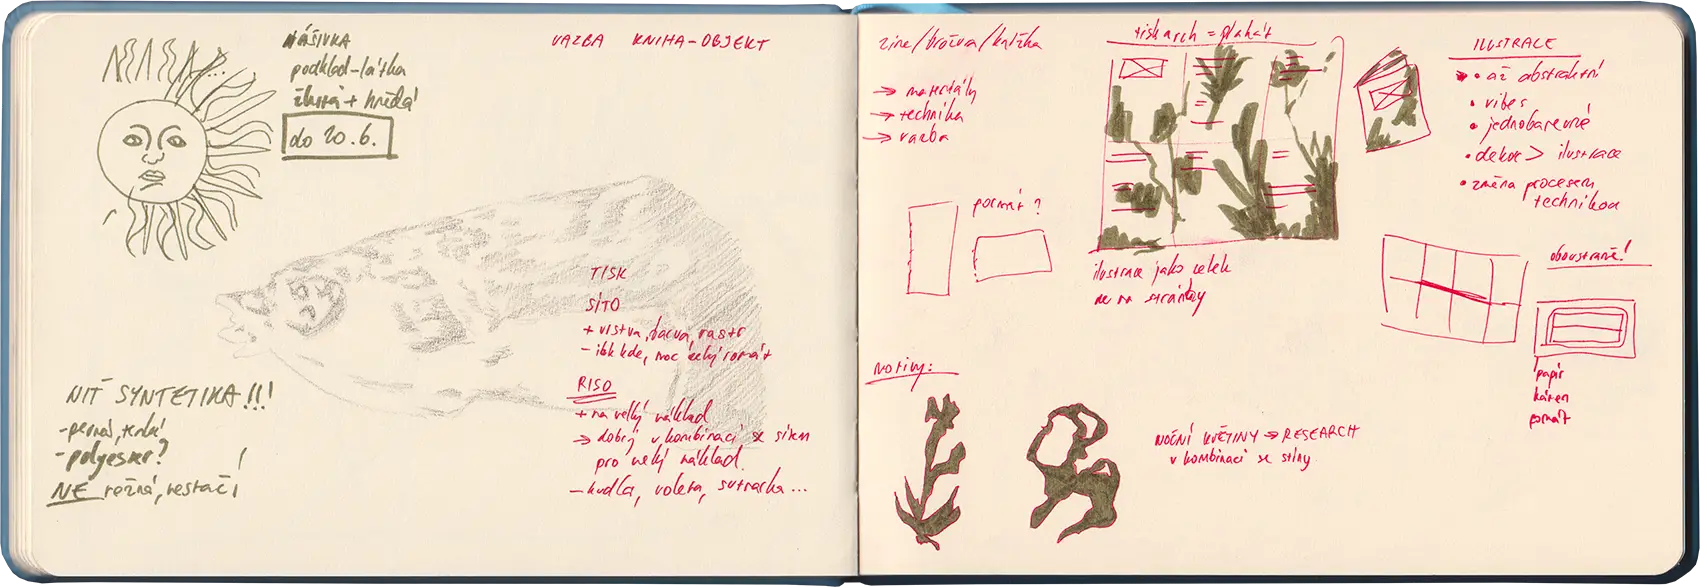 NÁŠIVKA
podklad-látka
žlutá + hnědá
do 20.6.
VAZBA KNIHA-OBJEKT
TISK
SÍTO
+ vrstva, barva, rastr
- kde, moc velký formát
RISO
+ na velký náklad
→ dobrý v kombinaci se sítem
pro velký náklad.
NIŤ SYNTETIKA!!!
- pevná, tenká
- polyester?
NE režná, nestačí!
zine/brožura/knížka
→ materiály
→ technika
→ vazba
formát?
tiskarch = plakát
ilustrace jako celek
ne na stránky
ILUSTRACE
• až abstraktní
• vibes
• jednobarevné
• dekor > ilustrace
• změna procesem
technikou
oboustraně!
papír
kámen
formát
motivy:
NOČNÍ KVĚTINY → RESEARCH
v kombinaci se stíny